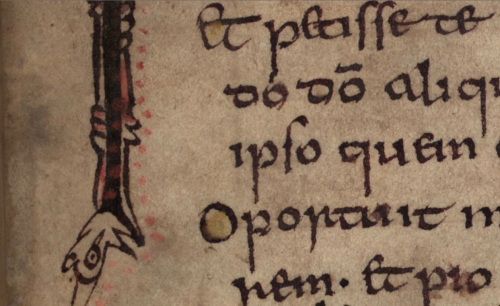 Et petisse te
do dō aliqu
ipso quem
Oportuit m
rem. Et pio